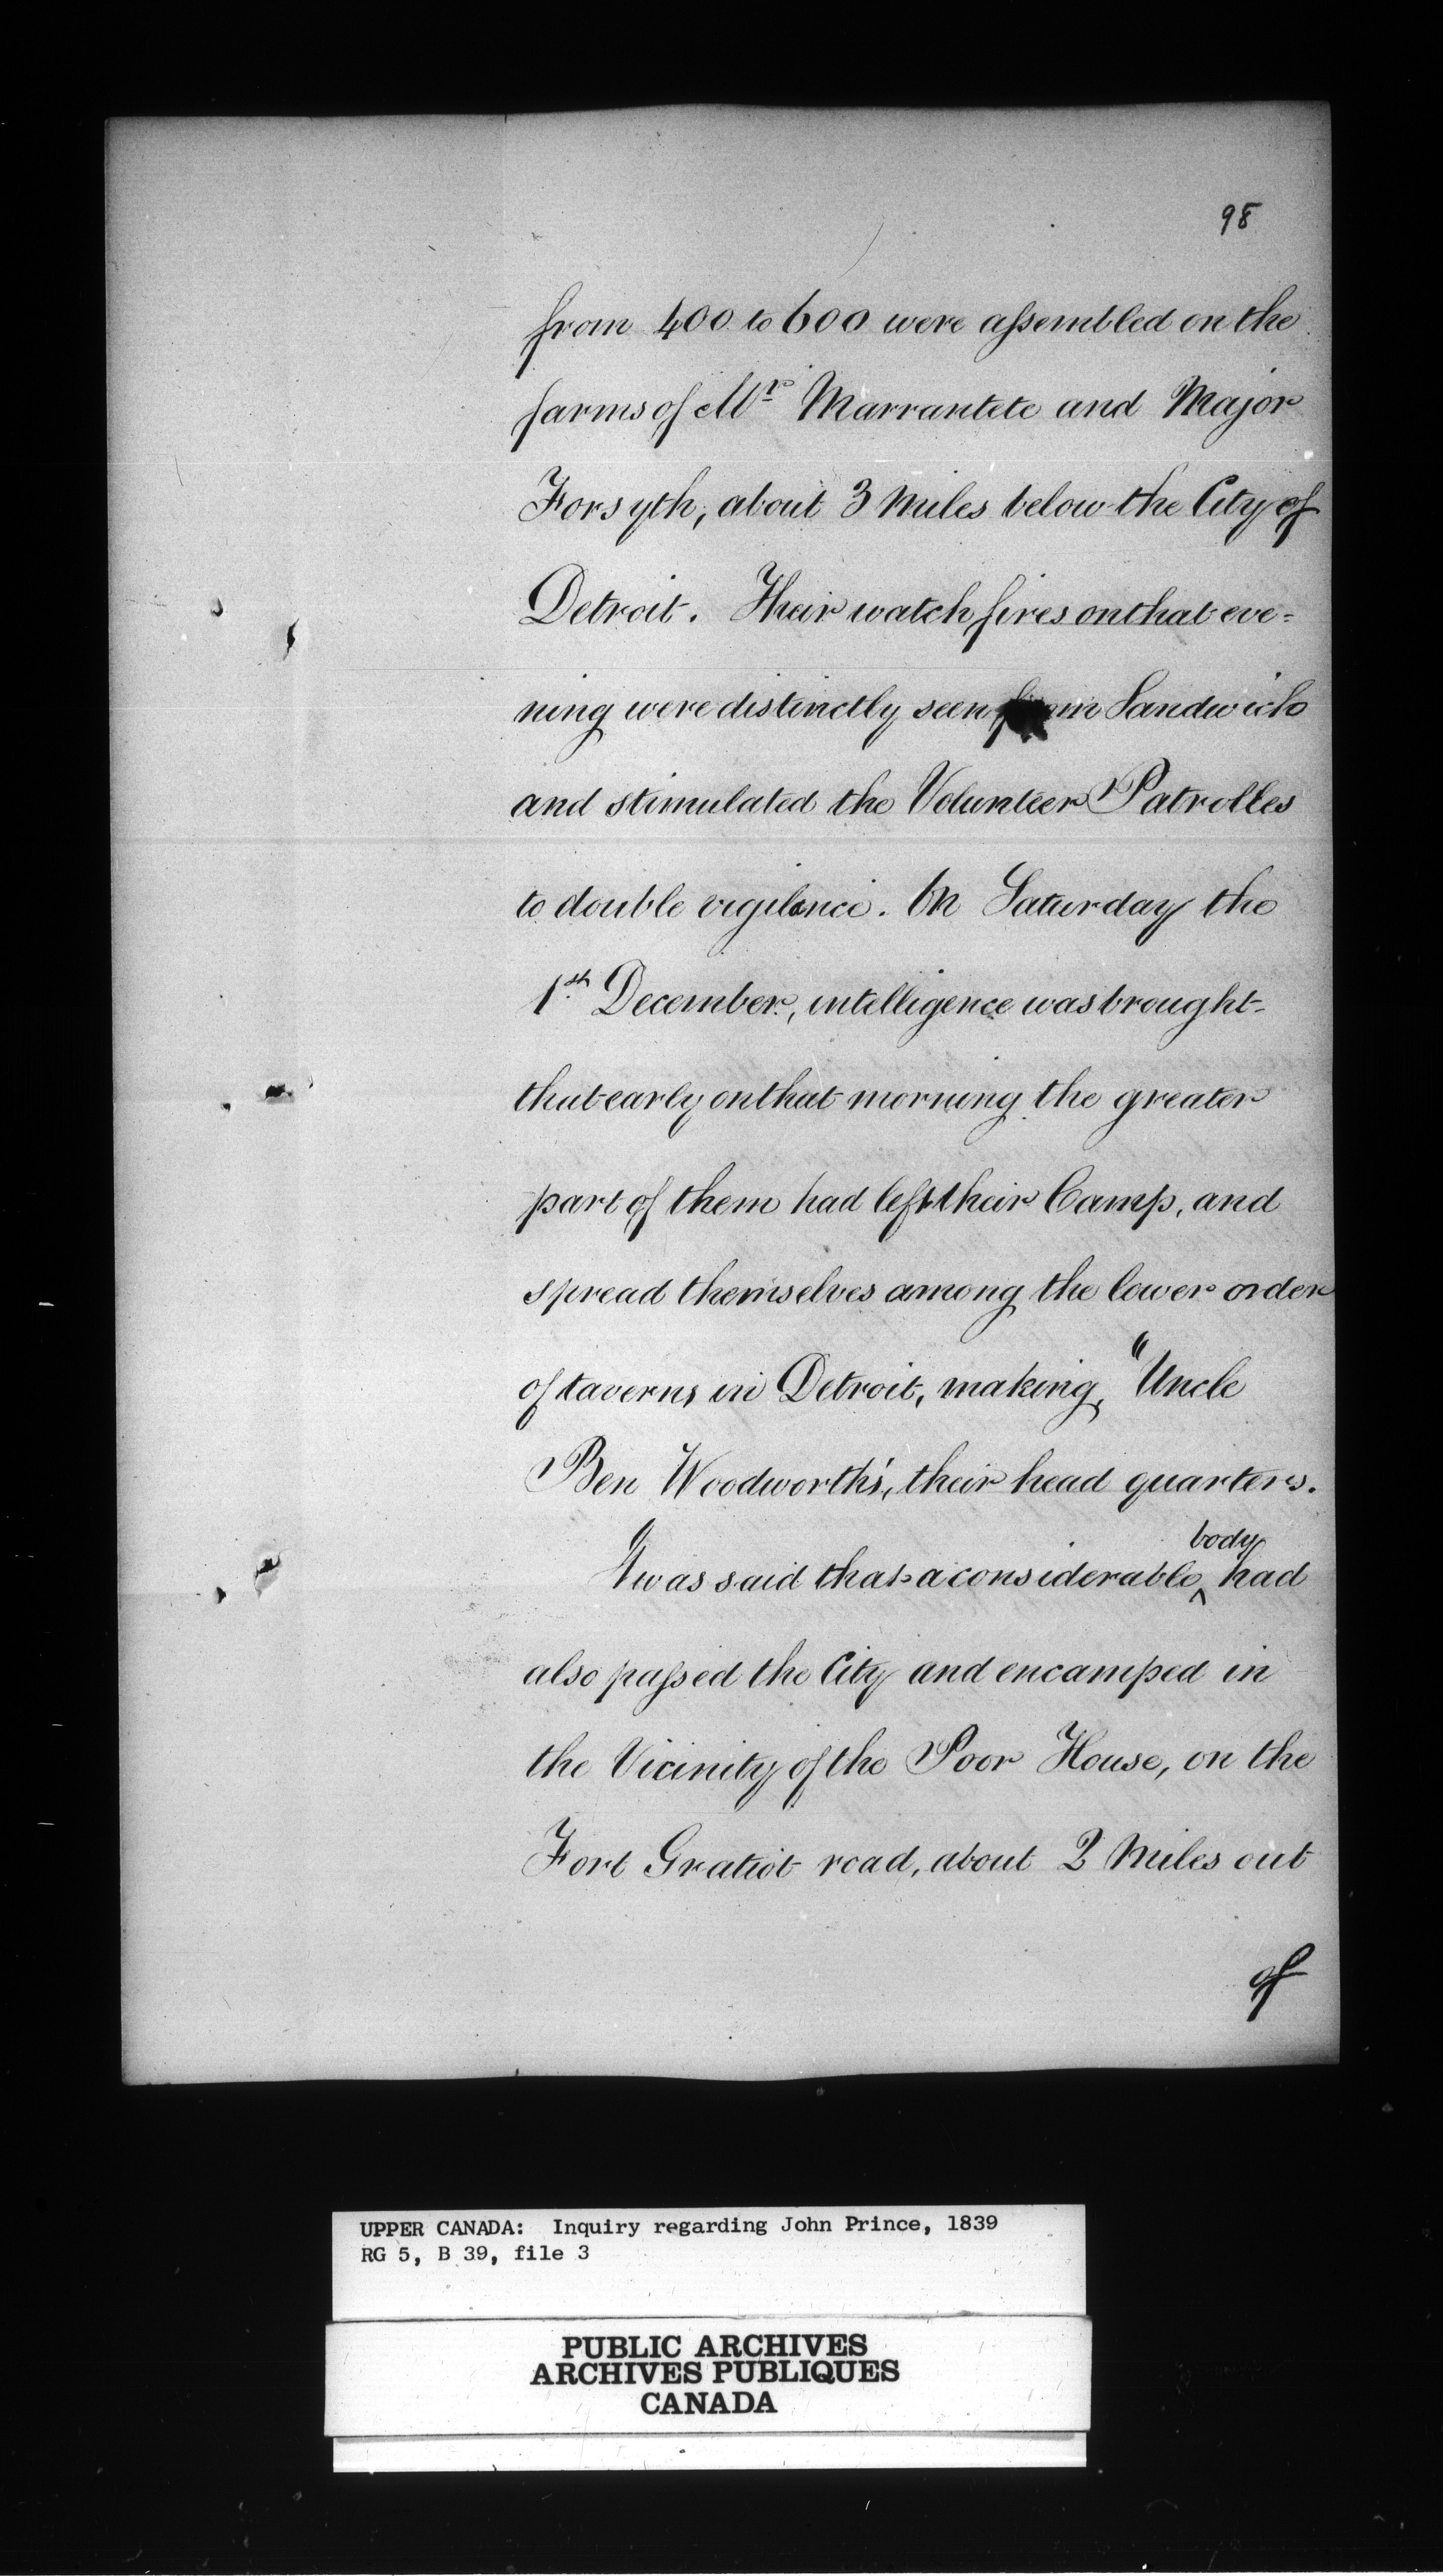 98
from 400 to 600 were assembled on the
farms of Mr Marrantete and Major
Forsyth, about 3 Miles below the City of
Detroit. Their watch fires on that eve=
ning were distinctly seen from Sandwich
and stimulated the Volunteer Patrolles
to double vigilance. On Saturday the
1st December, intelligence was brought
that early on that morning the greater
part of them had left their Camp, and
spread themselves among the lower order
of taverns in Detroit, making, "Uncle
Ben Woodworth's, their head quarters.
It was said that a considerable body had
also passed the City and encamped in
the Vicinity of the Poor House, on the
Fort Gratiot road, about 2 Miles out
of
UPPER CANADA: Inquiry regarding John Prince, 1839
RG 5, B 39, file 3
PUBLIC ARCHIVES
ARCHIVES PUBLIQUES
CANADA